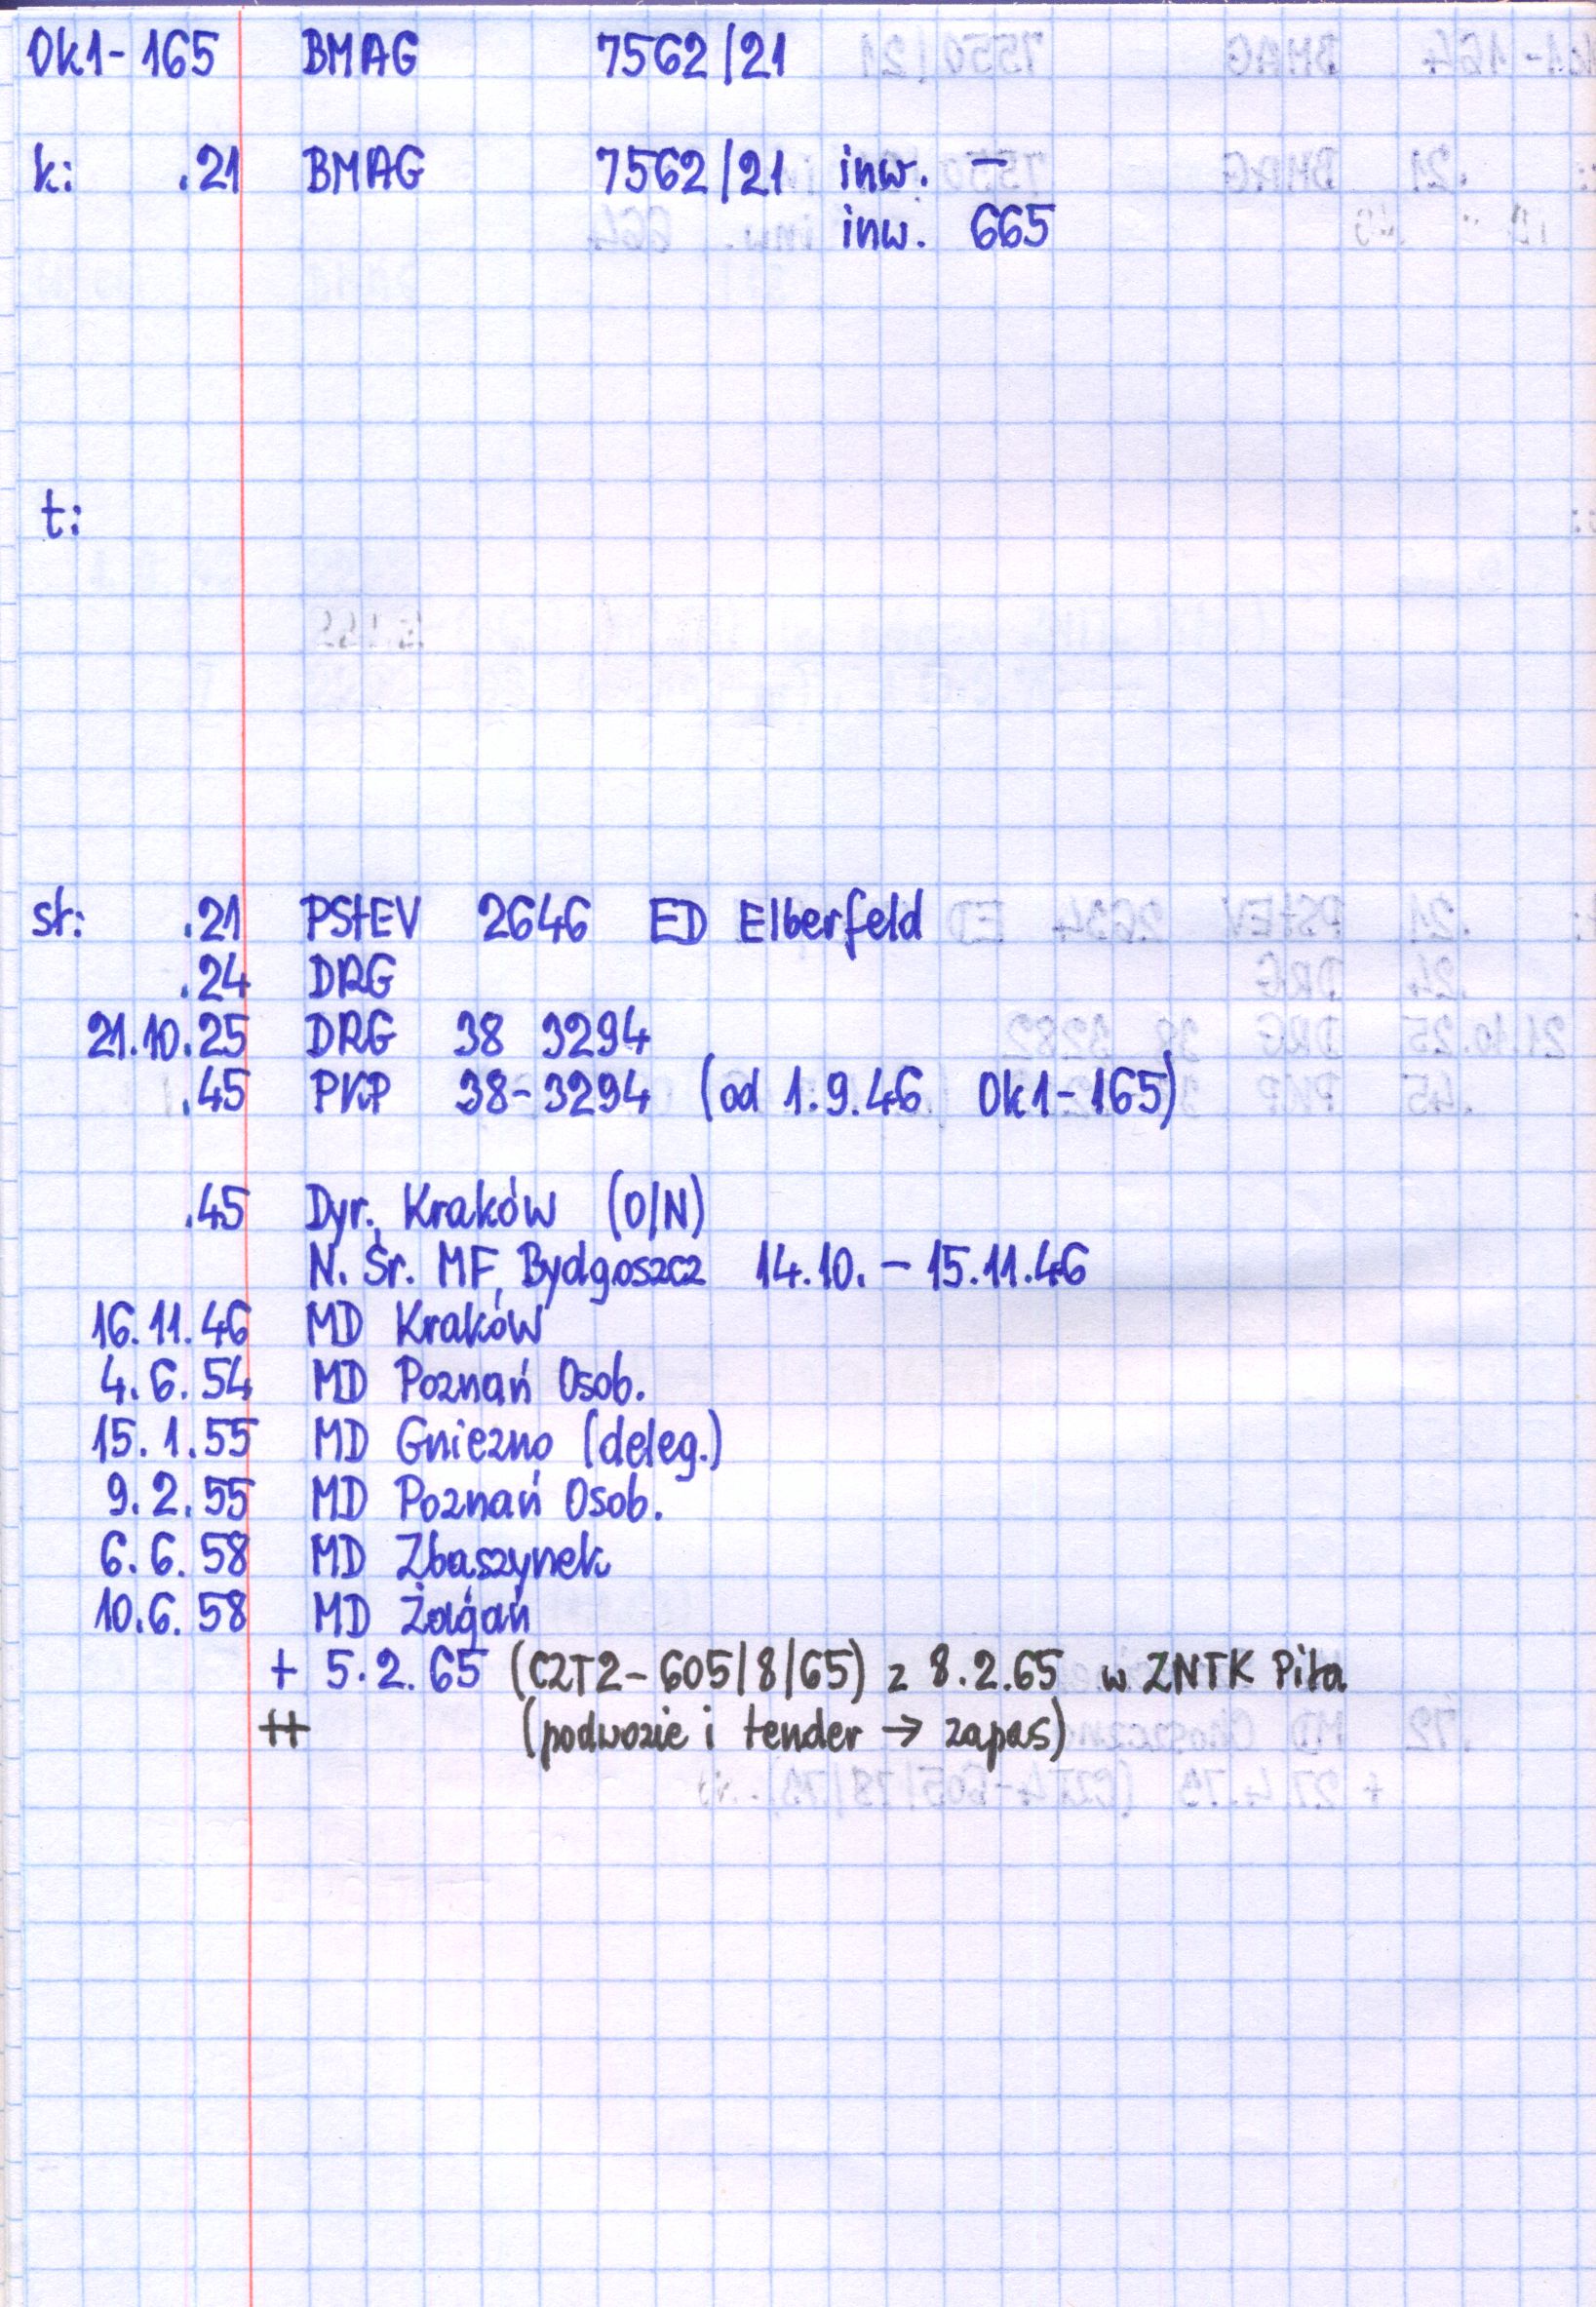 Ok1-165 BMAG 7562/21
k: .21 BMAG 7562/21 inw. —
inw. 665
t:
st: .21 PStEV 2646 ED Elberfeld
.24 DRG
21.10.25 DRG 38 3294
.45 PKP 38-3294 (od 1.9.46 Ok1-165)
.45 Dyr. Kraków (O/N)
N. Śr. MF Bydgoszcz 14.10. – 15.11.46
16.11.46 MD Kraków
4.6.54 MD Poznań Osob.
15.1.55 MD Gniezno (deleg.)
9.2.55 MD Poznań Osob.
6.6.58 MD Zbąszynek
10.6.58 MD Żagań
+ 5.2.65 (CZT2-605/8/65) z 8.2.65 w ZNTK Piła
++ (podwozie i tender → zapas)